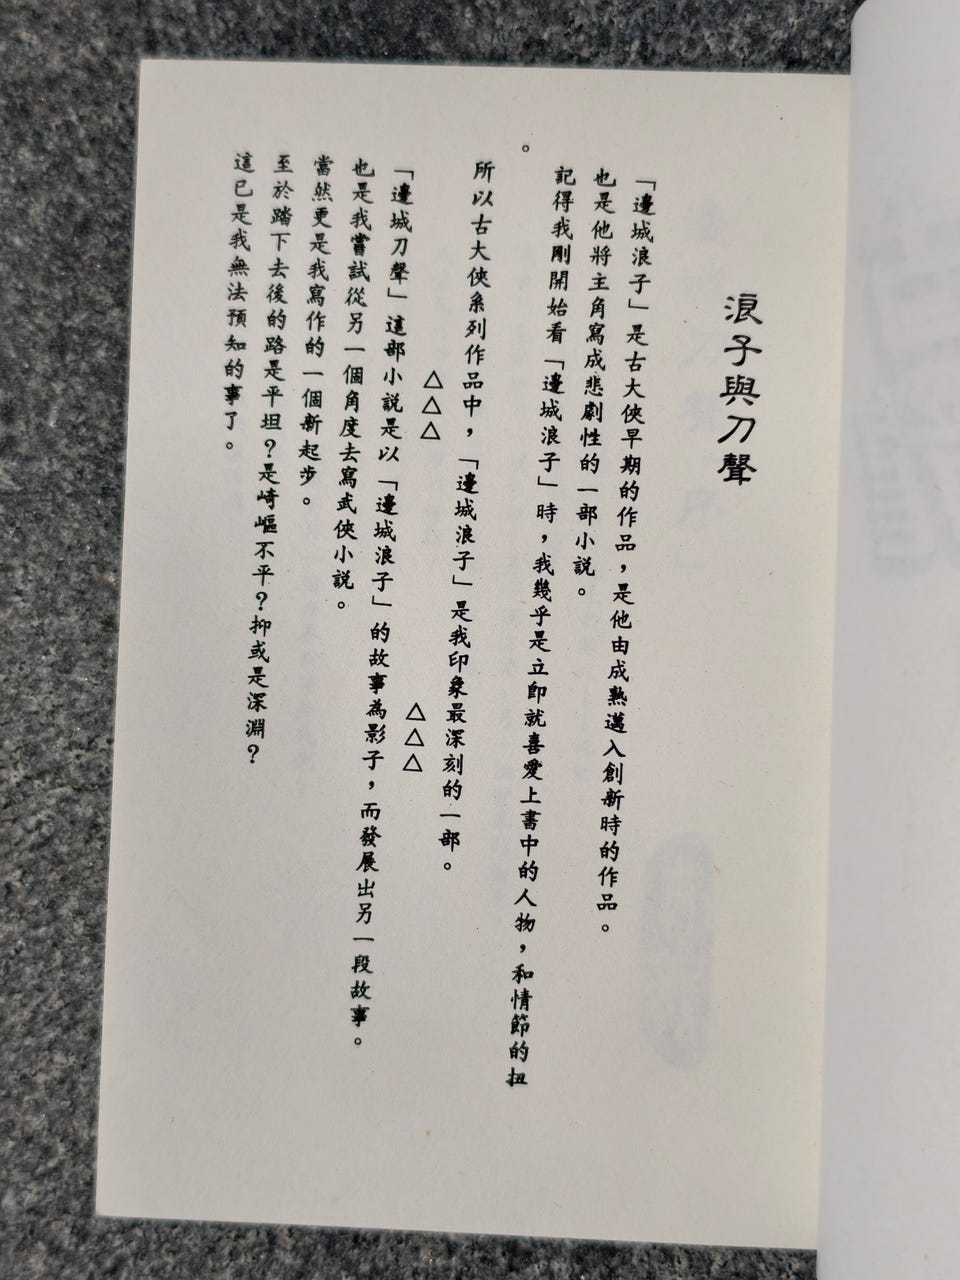 浪子與刀聲
「邊城浪子」是古大俠早期的作品，是他由成熟邁入創新時的作品。
也是他將主角寫成悲劇性的一部小説。
記得我剛開始看「邊城浪子」時，我幾乎是立即就喜愛上書中的人物，和情節的扭
。
所以古大俠系列作品中，「邊城浪子」是我印象最深刻的一部。
△△△　△△△
「邊城刀聲」這部小説是以「邊城浪子」的故事為影子，而發展出另一段故事。
也是我嘗試從另一個角度去寫武俠小説。
當然更是我寫作的一個新起步。
至於踏下去後的路是平坦？是崎嶇不平？抑或是深淵？
這已是我無法預知的事了。